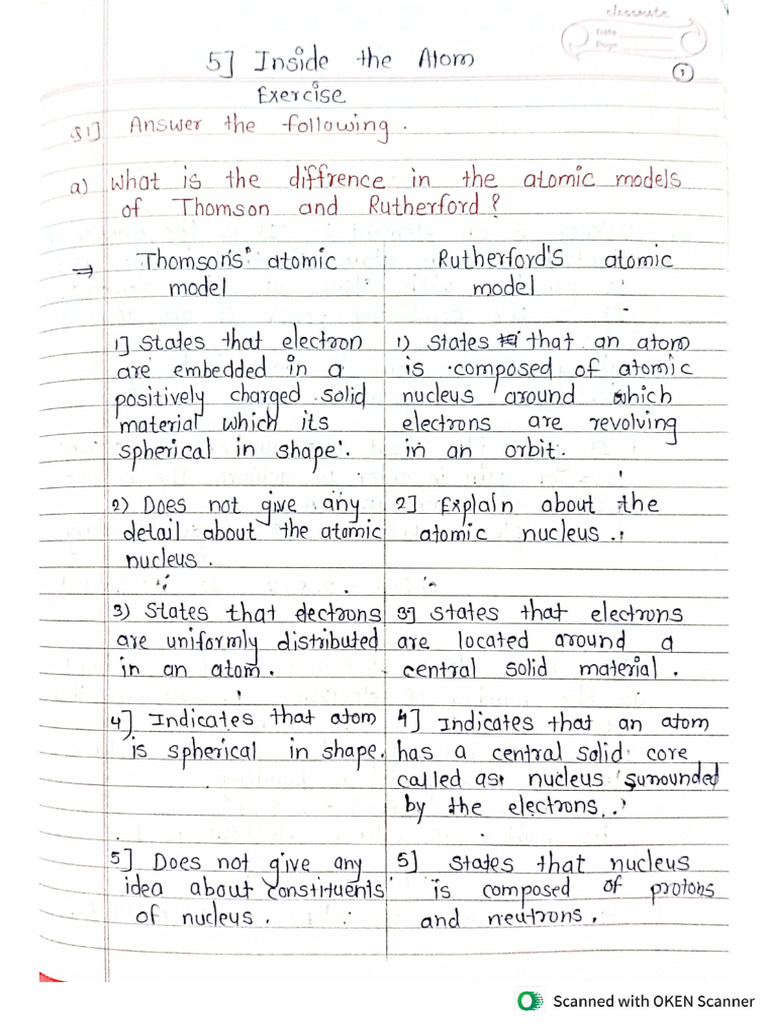 classmate
Date
Page
1
5] Inside the Atom
Exercise
Q1] Answer the following.
a) What is the diffrence in the atomic models
of Thomson and Rutherford?
⇒ Thomson's' atomic model
1] States that electron
are embedded in a
positively charged solid
material which its
spherical in shape.
2) Does not give any
detail about the atomic
nucleus.
3) States that electrons
are uniformly distributed
in an atom.
4] Indicates that atom
is spherical in shape.
5] Does not give any
idea about constituents
of nucleus.
Rutherford's atomic
model
1) States that an atom
is composed of atomic
nucleus around which
electrons are revolving
in an orbit.
2] Explain about the
atomic nucleus.
3] States that electrons
are located around a
central solid material.
4] Indicates that an atom
has a central solid core
called as nucleus surrounded
by the electrons.
5] States that nucleus
is composed of protons
and neutrons.
Scanned with OKEN Scanner